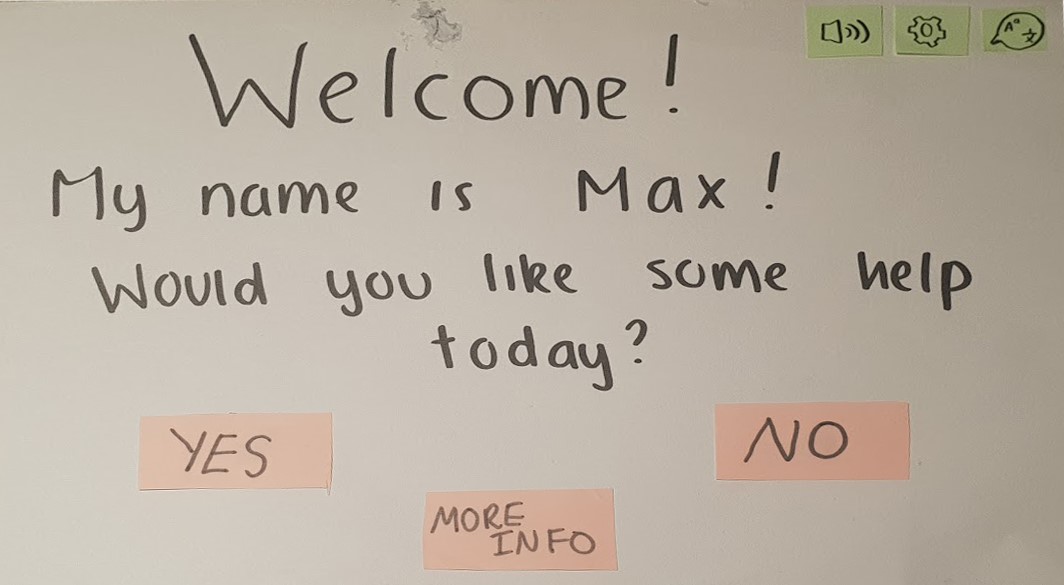 Welcome!
My name is Max!
Would you like some help
today?
YES
NO
MORE
INFO